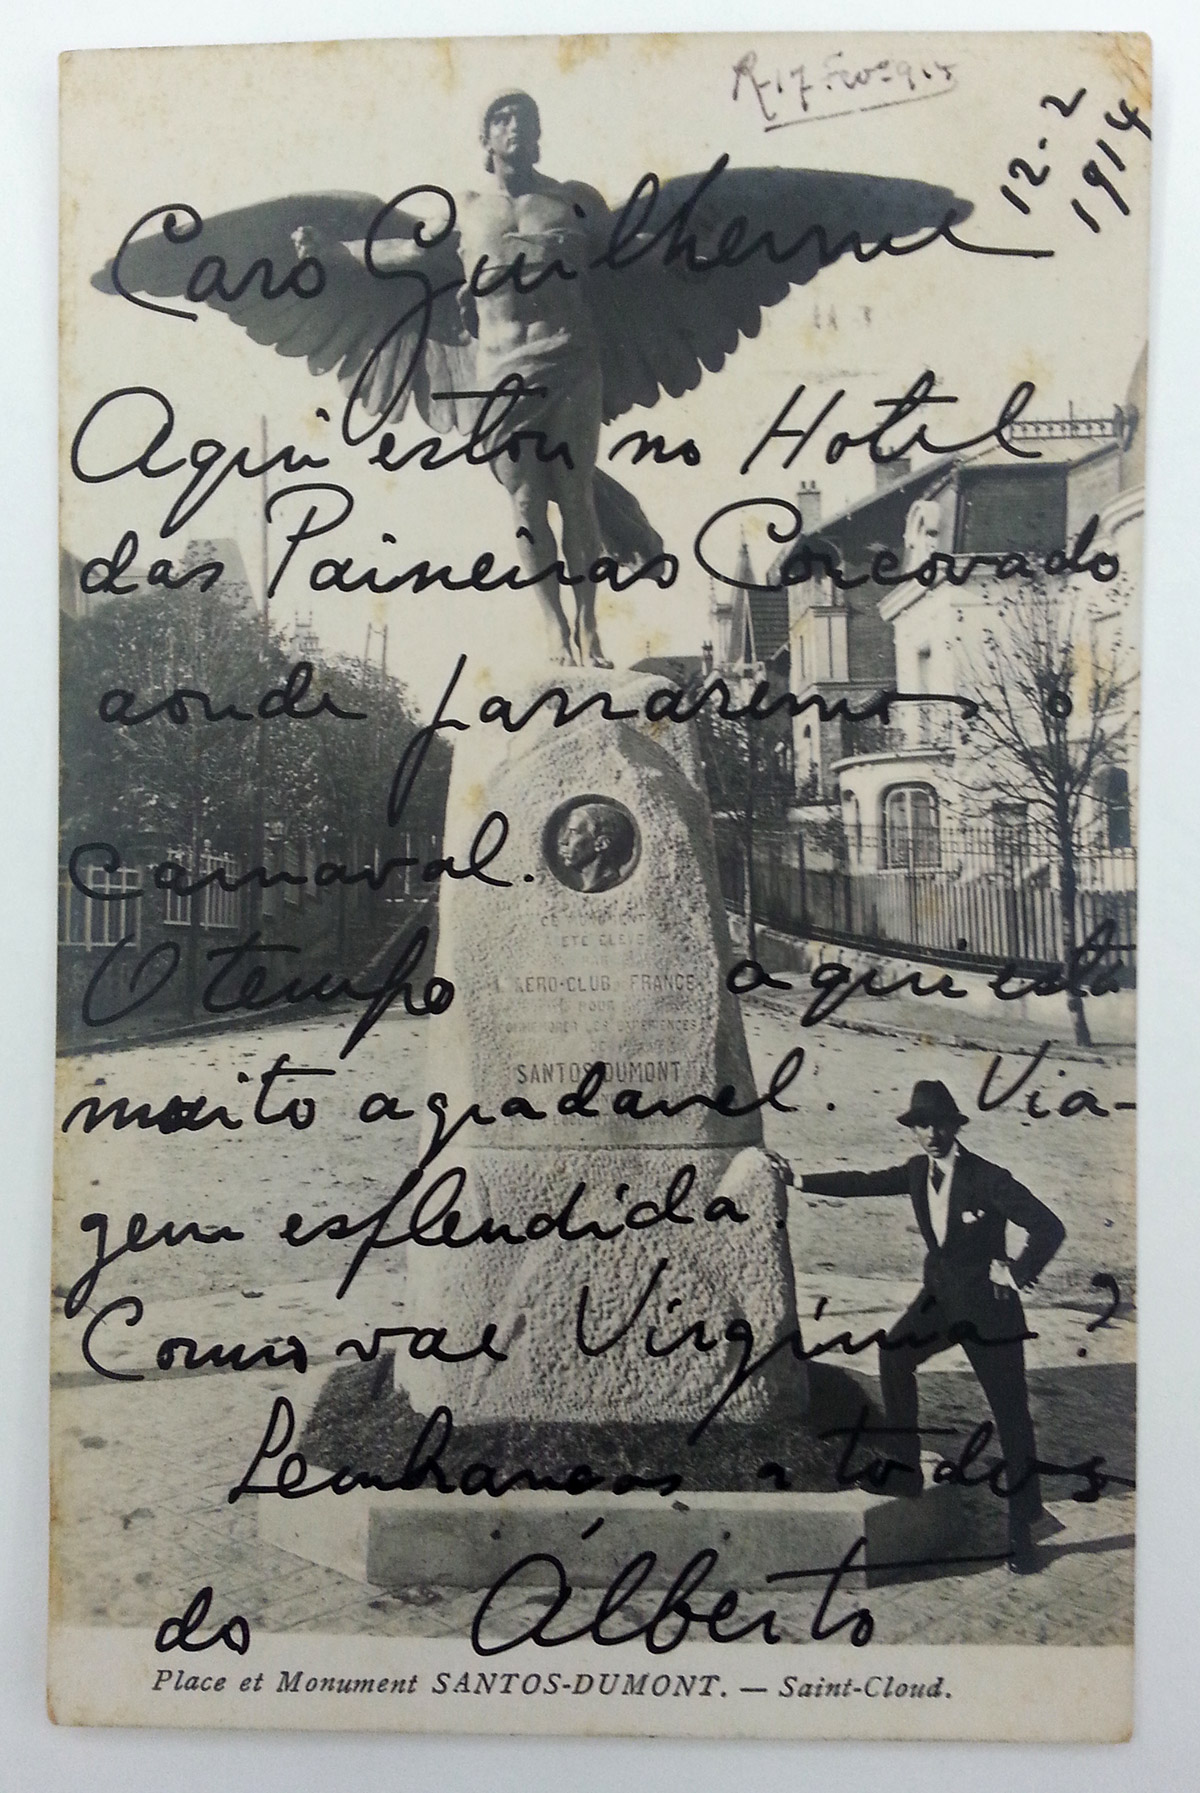 R. 17 Fevº 915
12-2
1914
Caro Guilherme
Aqui estou no Hotel
das Paineiras Corcovado
aonde passaremos o
carnaval.
O tempo aqui está
muito agradavel. Via-
gem esplendida.
Como vae Virgínia?
Lembranças a todos
do Alberto
CE MONUMENT
A ETE ELEVE
L'AERO-CLUB FRANCE
POUR
COMMEMORER LES EXPERIENCES
DE
SANTOS DUMONT
Place et Monument SANTOS-DUMONT. — Saint-Cloud.